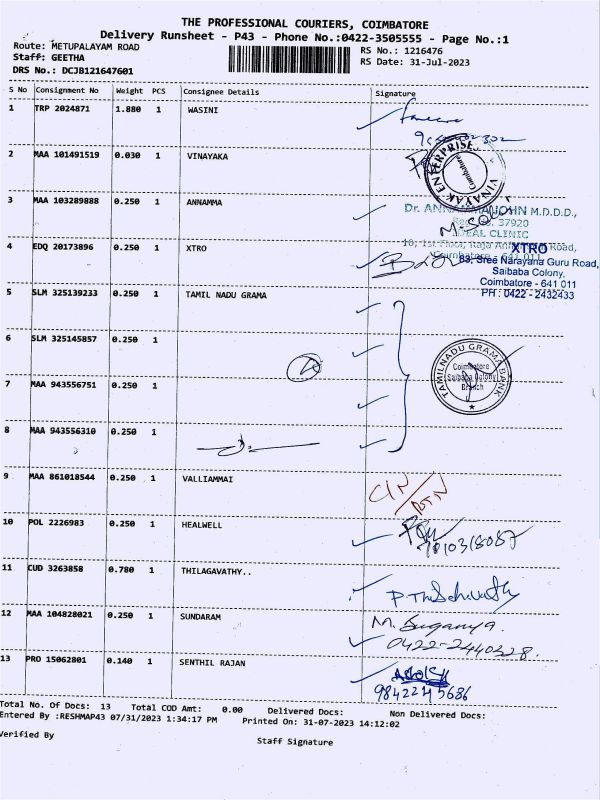 THE PROFESSIONAL COURIERS, COIMBATORE
Delivery Runsheet - P43 - Phone No.:0422-3505555 - Page No.:1
Route: METUPALAYAM ROAD
Staff: GEETHA
DRS No.: DCJB121647601
RS No.: 1216476
RS Date: 31-Jul-2023
S No Consignment No Weight PCS Consignee Details Signature
1 TRP 2024871 1.880 1 WASINI
2 MAA 101491519 0.030 1 VINAYAKA
VINAYAK ENTERPRISE
Coimbatore
3 MAA 103289888 0.250 1 ANNAMMA
M.D.D.D.,
37920
CLINIC
4 EDQ 20173896 0.250 1 XTRO
XTRO
83, Sree Narayana Guru Road,
Saibaba Colony,
Coimbatore - 641 011
PH : 0422 - 2432433
5 SLM 325139233 0.250 1 TAMIL NADU GRAMA
6 SLM 325145857 0.250 1
TAMILNADU GRAMA BANK
Coimbatore
Saibaba Colony
Branch
7 MAA 943556751 0.250 1
8 MAA 943556310 0.250 1
9 MAA 861018544 0.250 1 VALLIAMMAI
10 POL 2226983 0.250 1 HEALWELL
11 CUD 3263858 0.780 1 THILAGAVATHY..
12 MAA 104828021 0.250 1 SUNDARAM
M. Suganya.
0422-2440328.
13 PRO 15062801 0.140 1 SENTHIL RAJAN
Total No. Of Docs: 13 Total COD Amt: 0.00 Delivered Docs: Non Delivered Docs:
Entered By :RESHMAP43 07/31/2023 1:34:17 PM Printed On: 31-07-2023 14:12:02
Verified By
Staff Signature